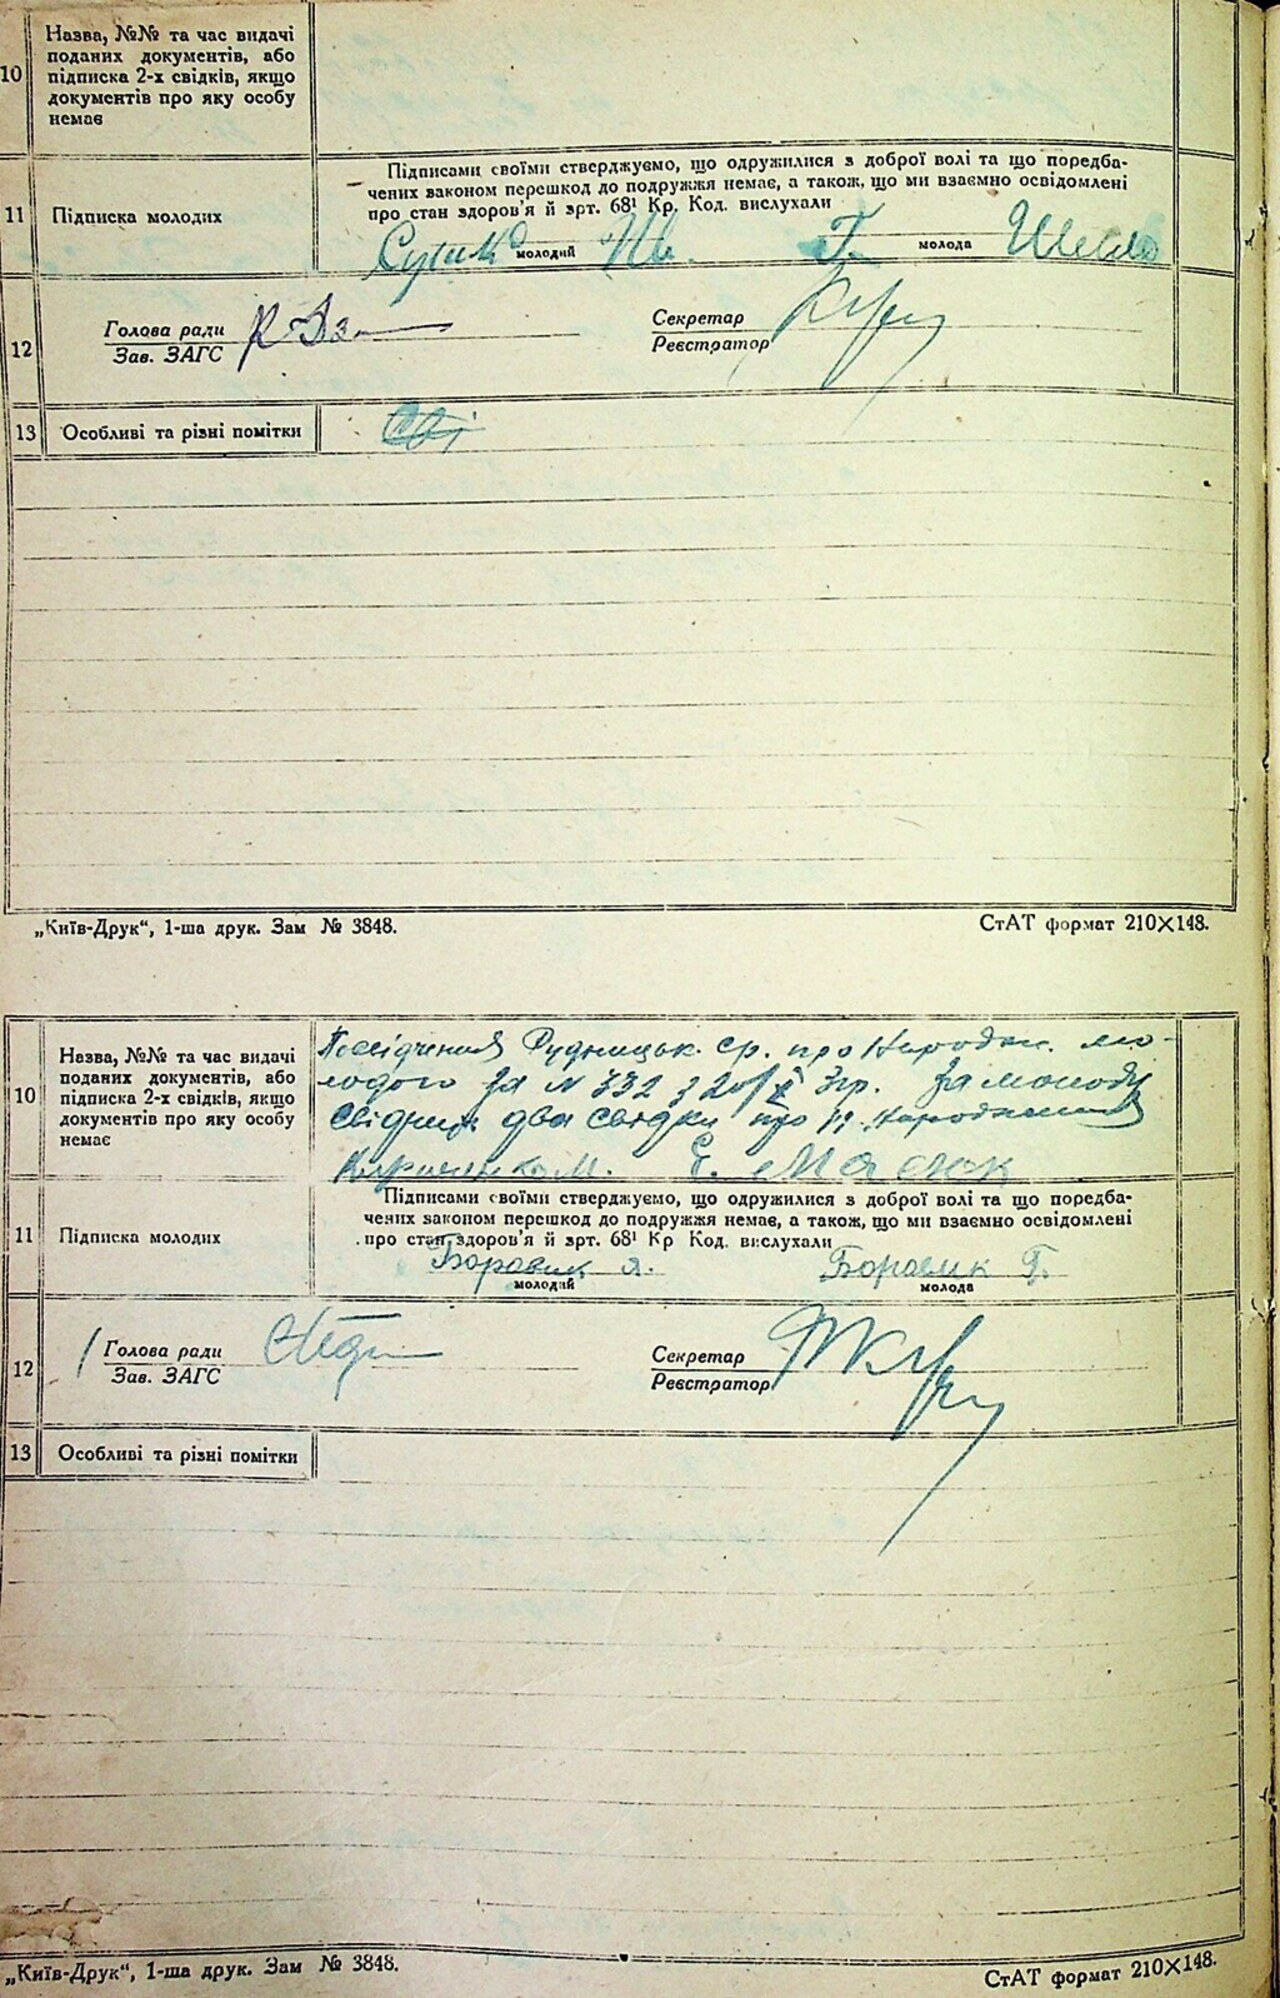 10
Назва, №№ та час видачі
поданих документів, або
підписка 2-х свідків, якщо
документів про яку особу
немає
11
Підписка молодих
Підписами своїми стверджуємо, що одружилися з доброї волі та що передба-
чених законом перешкод до подружжя немає, а також, що ми взаємно освідомлені
про стан здоров'я й арт. 68¹ Кр. Код. вислухали
молодий
Г.
молода
12
Голова ради
Зав. ЗАГС
Секретар
Реєстратор
13
Особливі та різні помітки
„Київ-Друк“, 1-ша друк. Зам № 3848.
СтАТ формат 210×148.
10
Назва, №№ та час видачі
поданих документів, або
підписка 2-х свідків, якщо
документів про яку особу
немає
Посвідчення Рудницьк. ср. про Народж. мо-
лодого за № 332 з 20/X Згр. За молоду
два свідки про її народження
М. Є. Масюк
11
Підписка молодих
Підписами своїми стверджуємо, що одружилися з доброї волі та що передба-
чених законом перешкод до подружжя немає, а також, що ми взаємно освідомлені
про стан здоров'я й арт. 68¹ Кр Код. вислухали
Боровик Я.
молодий
Боровик Г.
молода
12
Голова ради
Зав. ЗАГС
Секретар
Реєстратор
13
Особливі та різні помітки
„Київ-Друк“, 1-ша друк. Зам № 3848.
СтАТ формат 210×148.